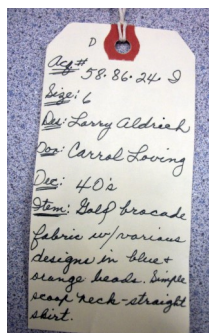 D
Acq# 58.86.24 D
Size: 6
Des: Larry Aldrich
Don: Carrol Loving
Dec: 40's
Item: Gold brocade
fabric w/various
designs in blue &
orange beads. Simple
scoop neck-straight
skirt.